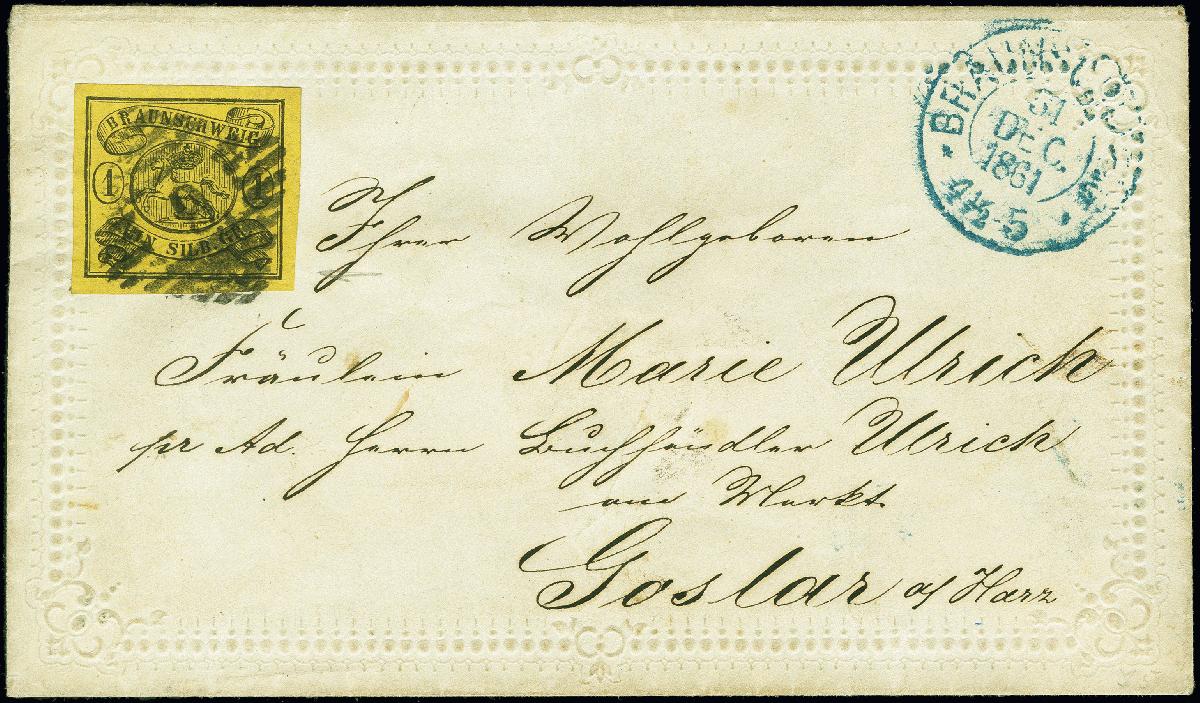 BRAUNSCHWEIG
1 1
EIN SILB. GR.
8
BRAUNSCHWEIG
31
DEC.
1861
4½-5
Ihrer Wohlgeboren
Fräulein Marie Ulrich
pr Ad. Herrn Buchhändler Ulrich
am Markt.
Goslar a/ Harz